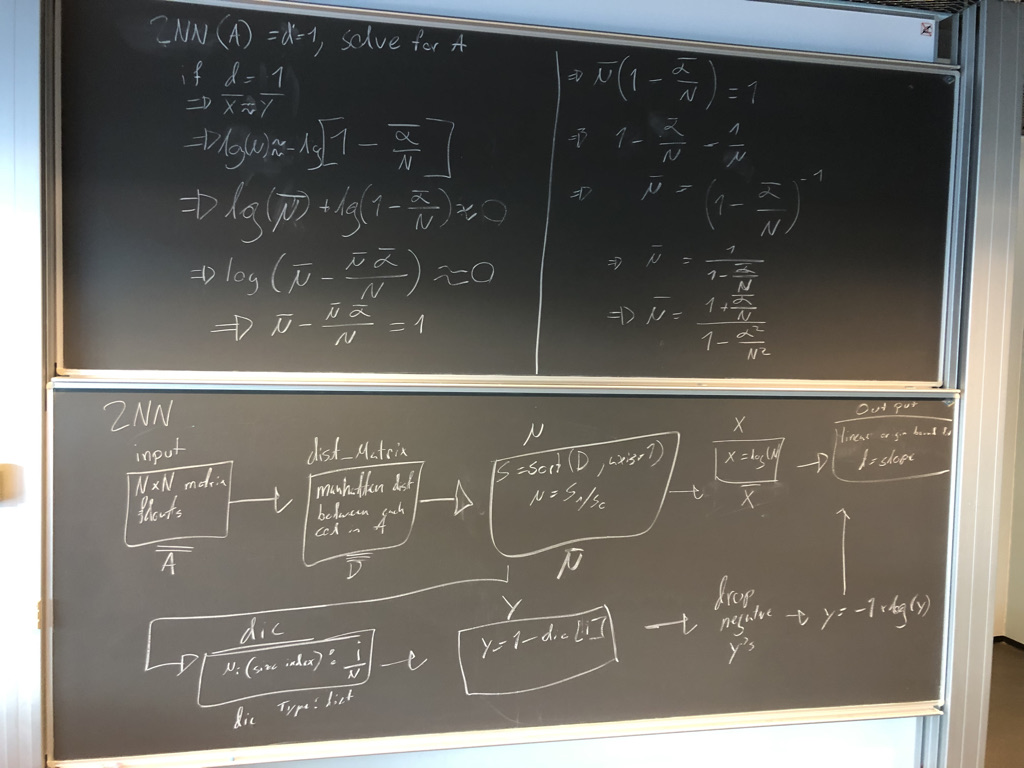 2NN (A) = d=1, solve for A
if d = 1
⇒ x ≈ y
⇒ log(μ) ≈ -log[1 - α̅/N]
⇒ log(μ̅) + log(1 - α̅/N) ≈ 0
⇒ log(μ̅ - μ̅ α̅/N) ≈ 0
⇒ μ̅ - μ̅ α̅/N = 1
⇒ μ̅(1 - α̅/N) = 1
⇒ 1 - α̅/N = 1/μ̅
⇒ μ̅ = (1 - α̅/N)⁻¹
⇒ μ̅ = 1/(1 - α̅/N)
⇒ μ̅ = (1 + α̅/N)/(1 - α̅²/N²)
2NN
input
NxN matrix
floats
A
dist_Matrix
manhattan dist
between each
in A
D
μ
S = sort(D, axis=1)
μ̅
X
X = log(μ)
X
Output
linear
d = slope
dic
μ: (size index) : i/N
dic Type: dict
Y
y = 1 - dic[i]
drop
negative
y's
y = -1 * log(y)